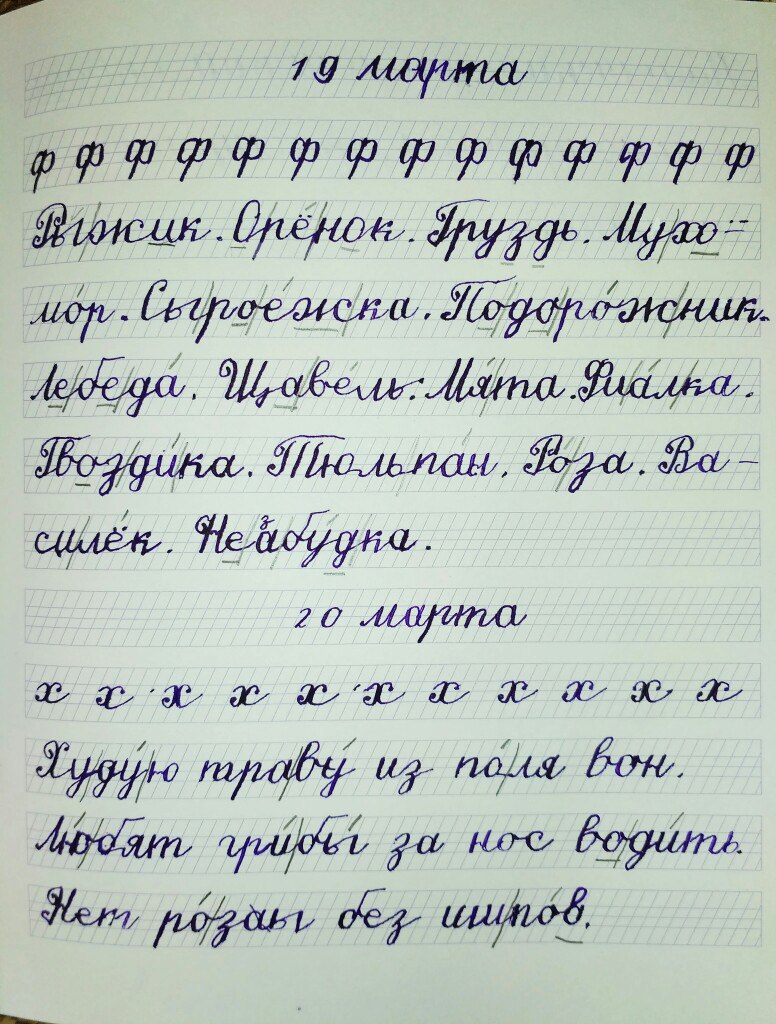 19 марта
ф ф ф ф ф ф ф ф ф ф ф ф ф ф
Рыжик. Орёнок. Груздь. Мухо=
мор. Сыроежка. Подорожник.
Лебеда. Щавель. Мята. Фиалка.
Гвоздика. Тюльпан. Роза. Ва-
силёк. Незабудка.
20 марта
х х х х х х х х х х х
Худую траву из поля вон.
Любят грибы за нос водить.
Нет розы без шипов.